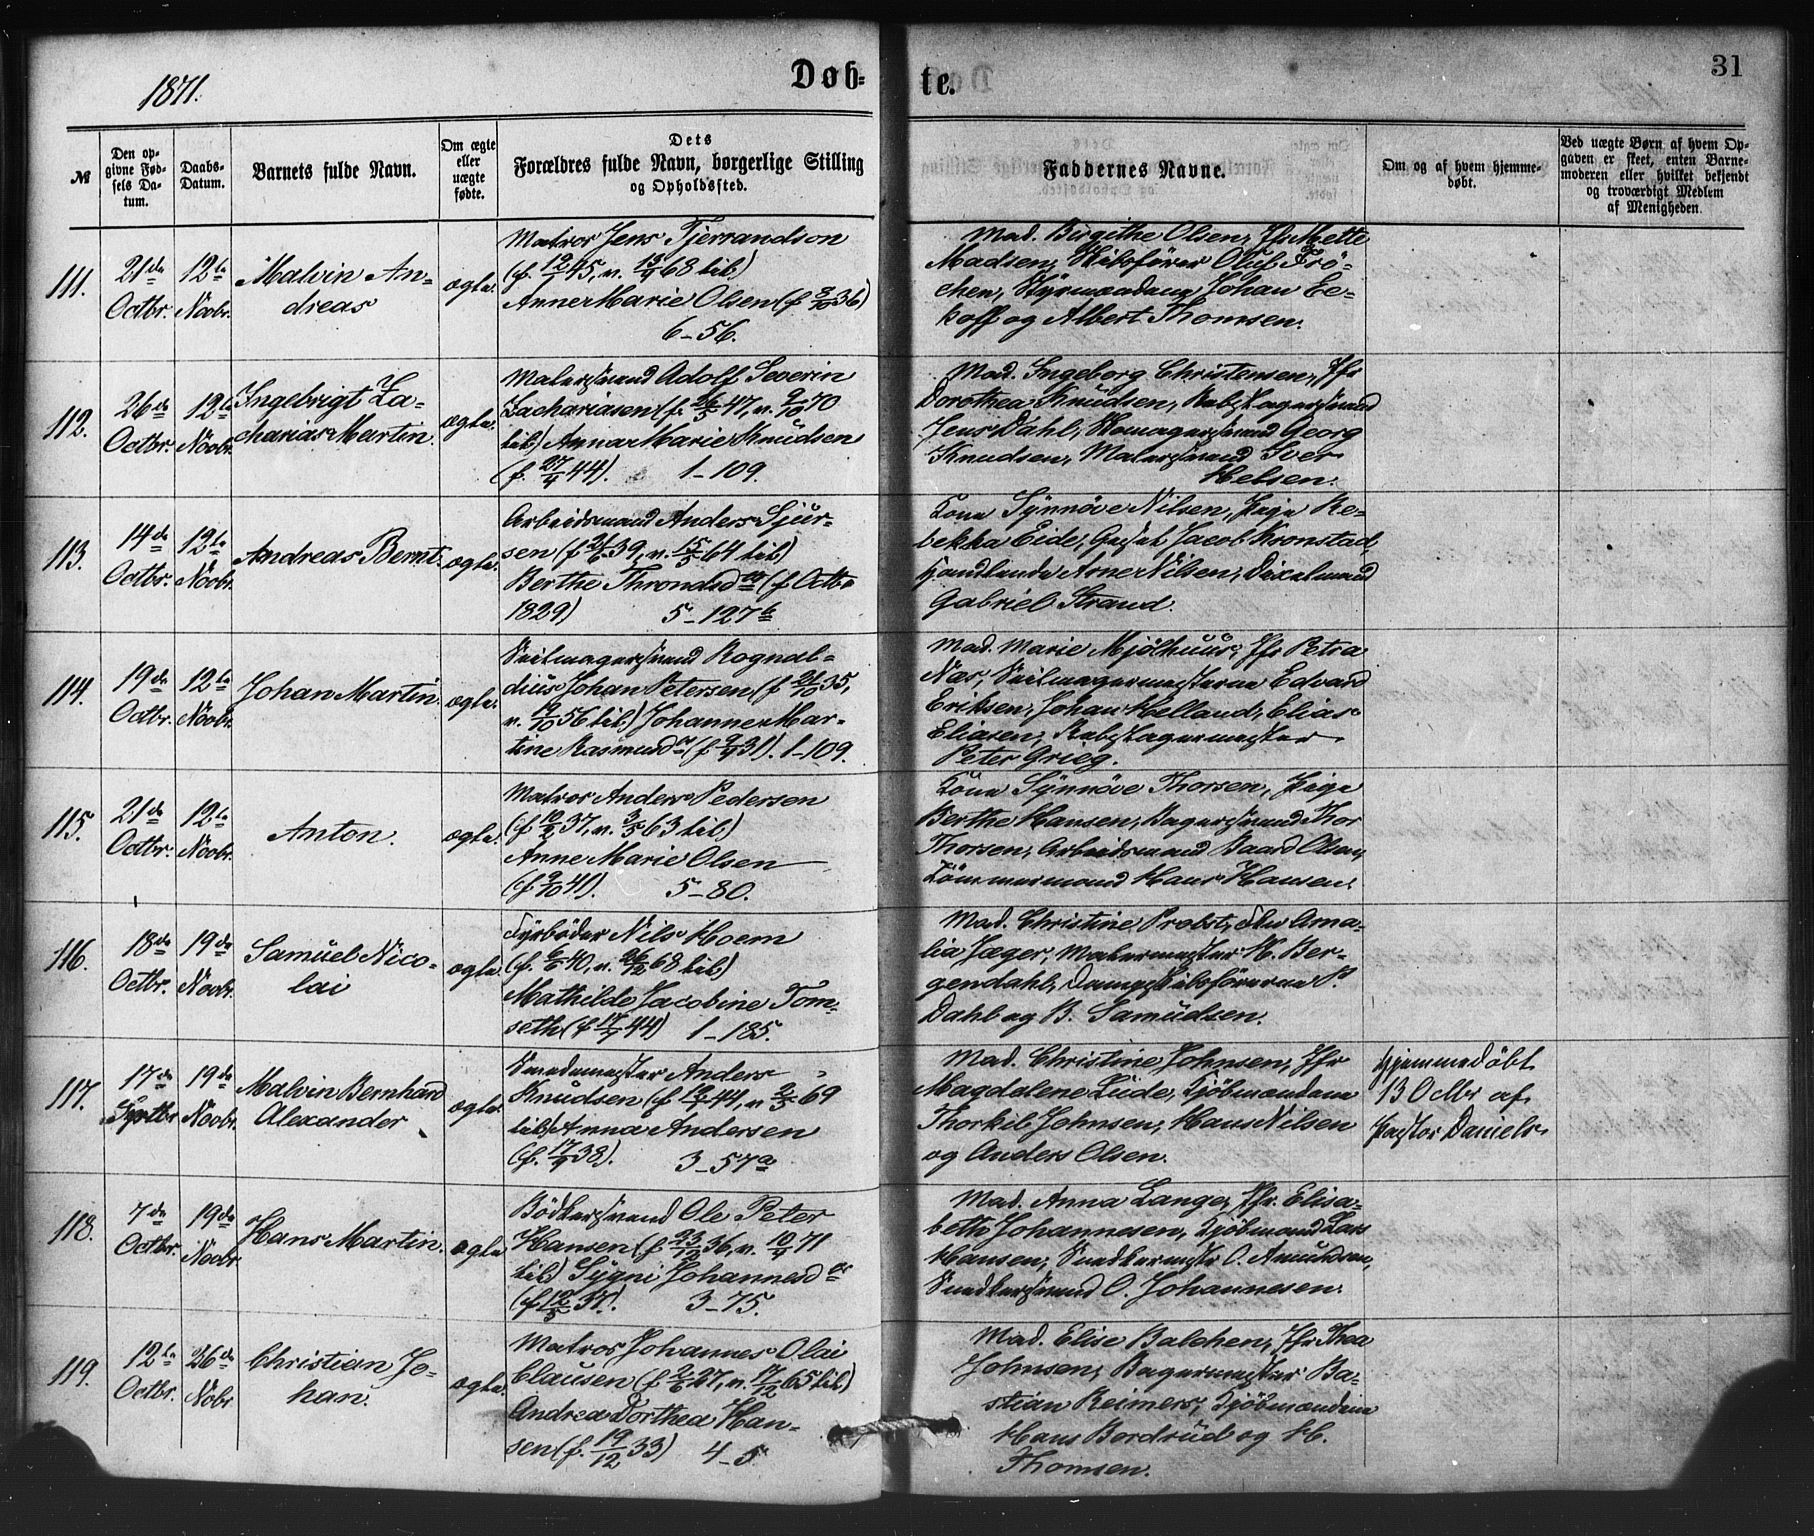 1871.
Døb-
te.
31
№
Den op-
givne Fød-
sels Da-
tum.
Daabs-
Datum.
Barnets fulde Navn.
Om ægte
eller
uægte
fødte.
Dets
Forældres fulde Navn, borgerlige Stilling
og Opholdssted.
Faddernes Navne.
Om og af hvem hjemme-
døbt.
Ved uægte Børn af hvem Op-
gaven er skeet, enten Barne-
moderen eller hvilket bekjendt
og troværdigt Medlem
af Menigheden.
111.
21de
Octbr.
12te
Novbr.
Malvin An-
dreas
ægte.
Matros Jens Tjerrandson
(f. 45, v. 68 til)
Anne Marie Olsen (f. 36)
6-56.
Mad. Birgithe Olsen, Jfr Mette
Madsen, Skibsfører Oluf Frö-
chen, Styrmændene Johan Ee-
hoff og Albert Thomsen.
112.
26de
Octbr.
12te
Novbr.
Ingebrigt Za-
charias Martin.
ægte.
Malersvend Adolf Severin
Zachariasen (f. 26/5 47, v. 2/10 70
til) Anna Marie Knudsen
(f. 27/4 44). 1-109.
Mad. Ingeborg Christensen, Jfr
Dorothea Knudsen, Rebslagersvend
Jens Dahl, Skomagersvend Georg
Knudsen, Malersvend Iver
Helsen.
113.
14de
Octbr.
12te
Novbr.
Andreas Bernt.
ægte.
Arbeidsmand Anders Sjur-
sen (f. 39, v. 15/5 64 til)
Berthe Throndsdr (f. Octbr
1829) 5-127b
Kone Synnöve Nilsen, Pige Re-
bekka Eide, Gast Jacob Kronstad,
Handlende Arne Nilsen, Dixelmand
Gabriel Strand.
114.
19de
Octbr.
12te
Novbr.
Johan Martin.
ægte.
Seilmagersvend Rognal-
dius Johan Petersen (f. 21/10 35,
v. 19/10 56 til) Johanne Mar-
tine Rasmusdr (f. 9/4 31). 1-109.
Mad. Marie Mjölhuus, Jfr Petra
Næs, Seilmagermesterne Edvard
Eriksen, Johan Helland, Elias
Eliasen, Rebslagermester
Peter Grieg.
115.
21de
Octbr.
12te
Novbr.
Anton.
ægte.
Matros Anders Pedersen
(f. 37, v. 3/5 63 til)
Anne Marie Olsen
(f. 9/10 41). 5-80.
Kone Synnöve Thorsen, Pige
Berthe Hansen, Bagersvend Thor
Thorsen, Arbeidsmand Baard Olsen,
Tömmermand Hans Hansen.
116.
18de
Octbr.
19de
Novbr.
Samuel Nico-
lai
ægte.
Fyrböder Nils Hoem
(f. 6/6 40, v. 26/12 68 til)
Mathilde Jacobine Tom-
seth (f. 44) 1-185.
Mad. Christine Probst, Fru Ama-
lia Jæger, Malermester H. Ber-
gendahl, Dampskibsförerne P.
Dahl og B. Samudsen.
117.
17de
Septbr
19de
Novbr.
Malvin Bernhard
Alexander
ægte.
Smedemester Anders
Knudsen (f. 44, v. 2/5 69
til) Anna Andersen
(f. 38). 3-57a
Mad. Christine Johnsen, Jfr
Magdalene Lude, Kjöbmændene
Thorkil Johnsen, Hans Nilsen
og Anders Olsen.
Hjemmedöbt
13 Octbr af
Pastor Daniels.
118.
7de
Octbr.
19de
Novbr
Hans Martin.
ægte
Bödkersvend Ole Peter
Hansen (f. 23/12 36, v. 10/4 71
til) Sygni Johannesdr
(f. 37). 3-75.
Mad. Anna Lange, Jfr. Elisa-
beth Johannesen, Kjöbmand Lars
Hansen, Snedkermestr O. Amundsen,
Snedkersvend O. Johannesen.
119.
12te
Octbr.
26de
Nobr
Christian Jo-
han.
ægte.
Matros Johannes Olai
Clausen (f. 2/6 27, v. 17/12 65 til)
Andrea Dorthea Han-
sen (f. 19/12 33) 4-5.
Mad. Elise Balchen, Jfr Thea
Johnsen, Bagermester Ba-
stian Reimers, Kjöbmændene
Hans Bordrud og H.
Thomsen.